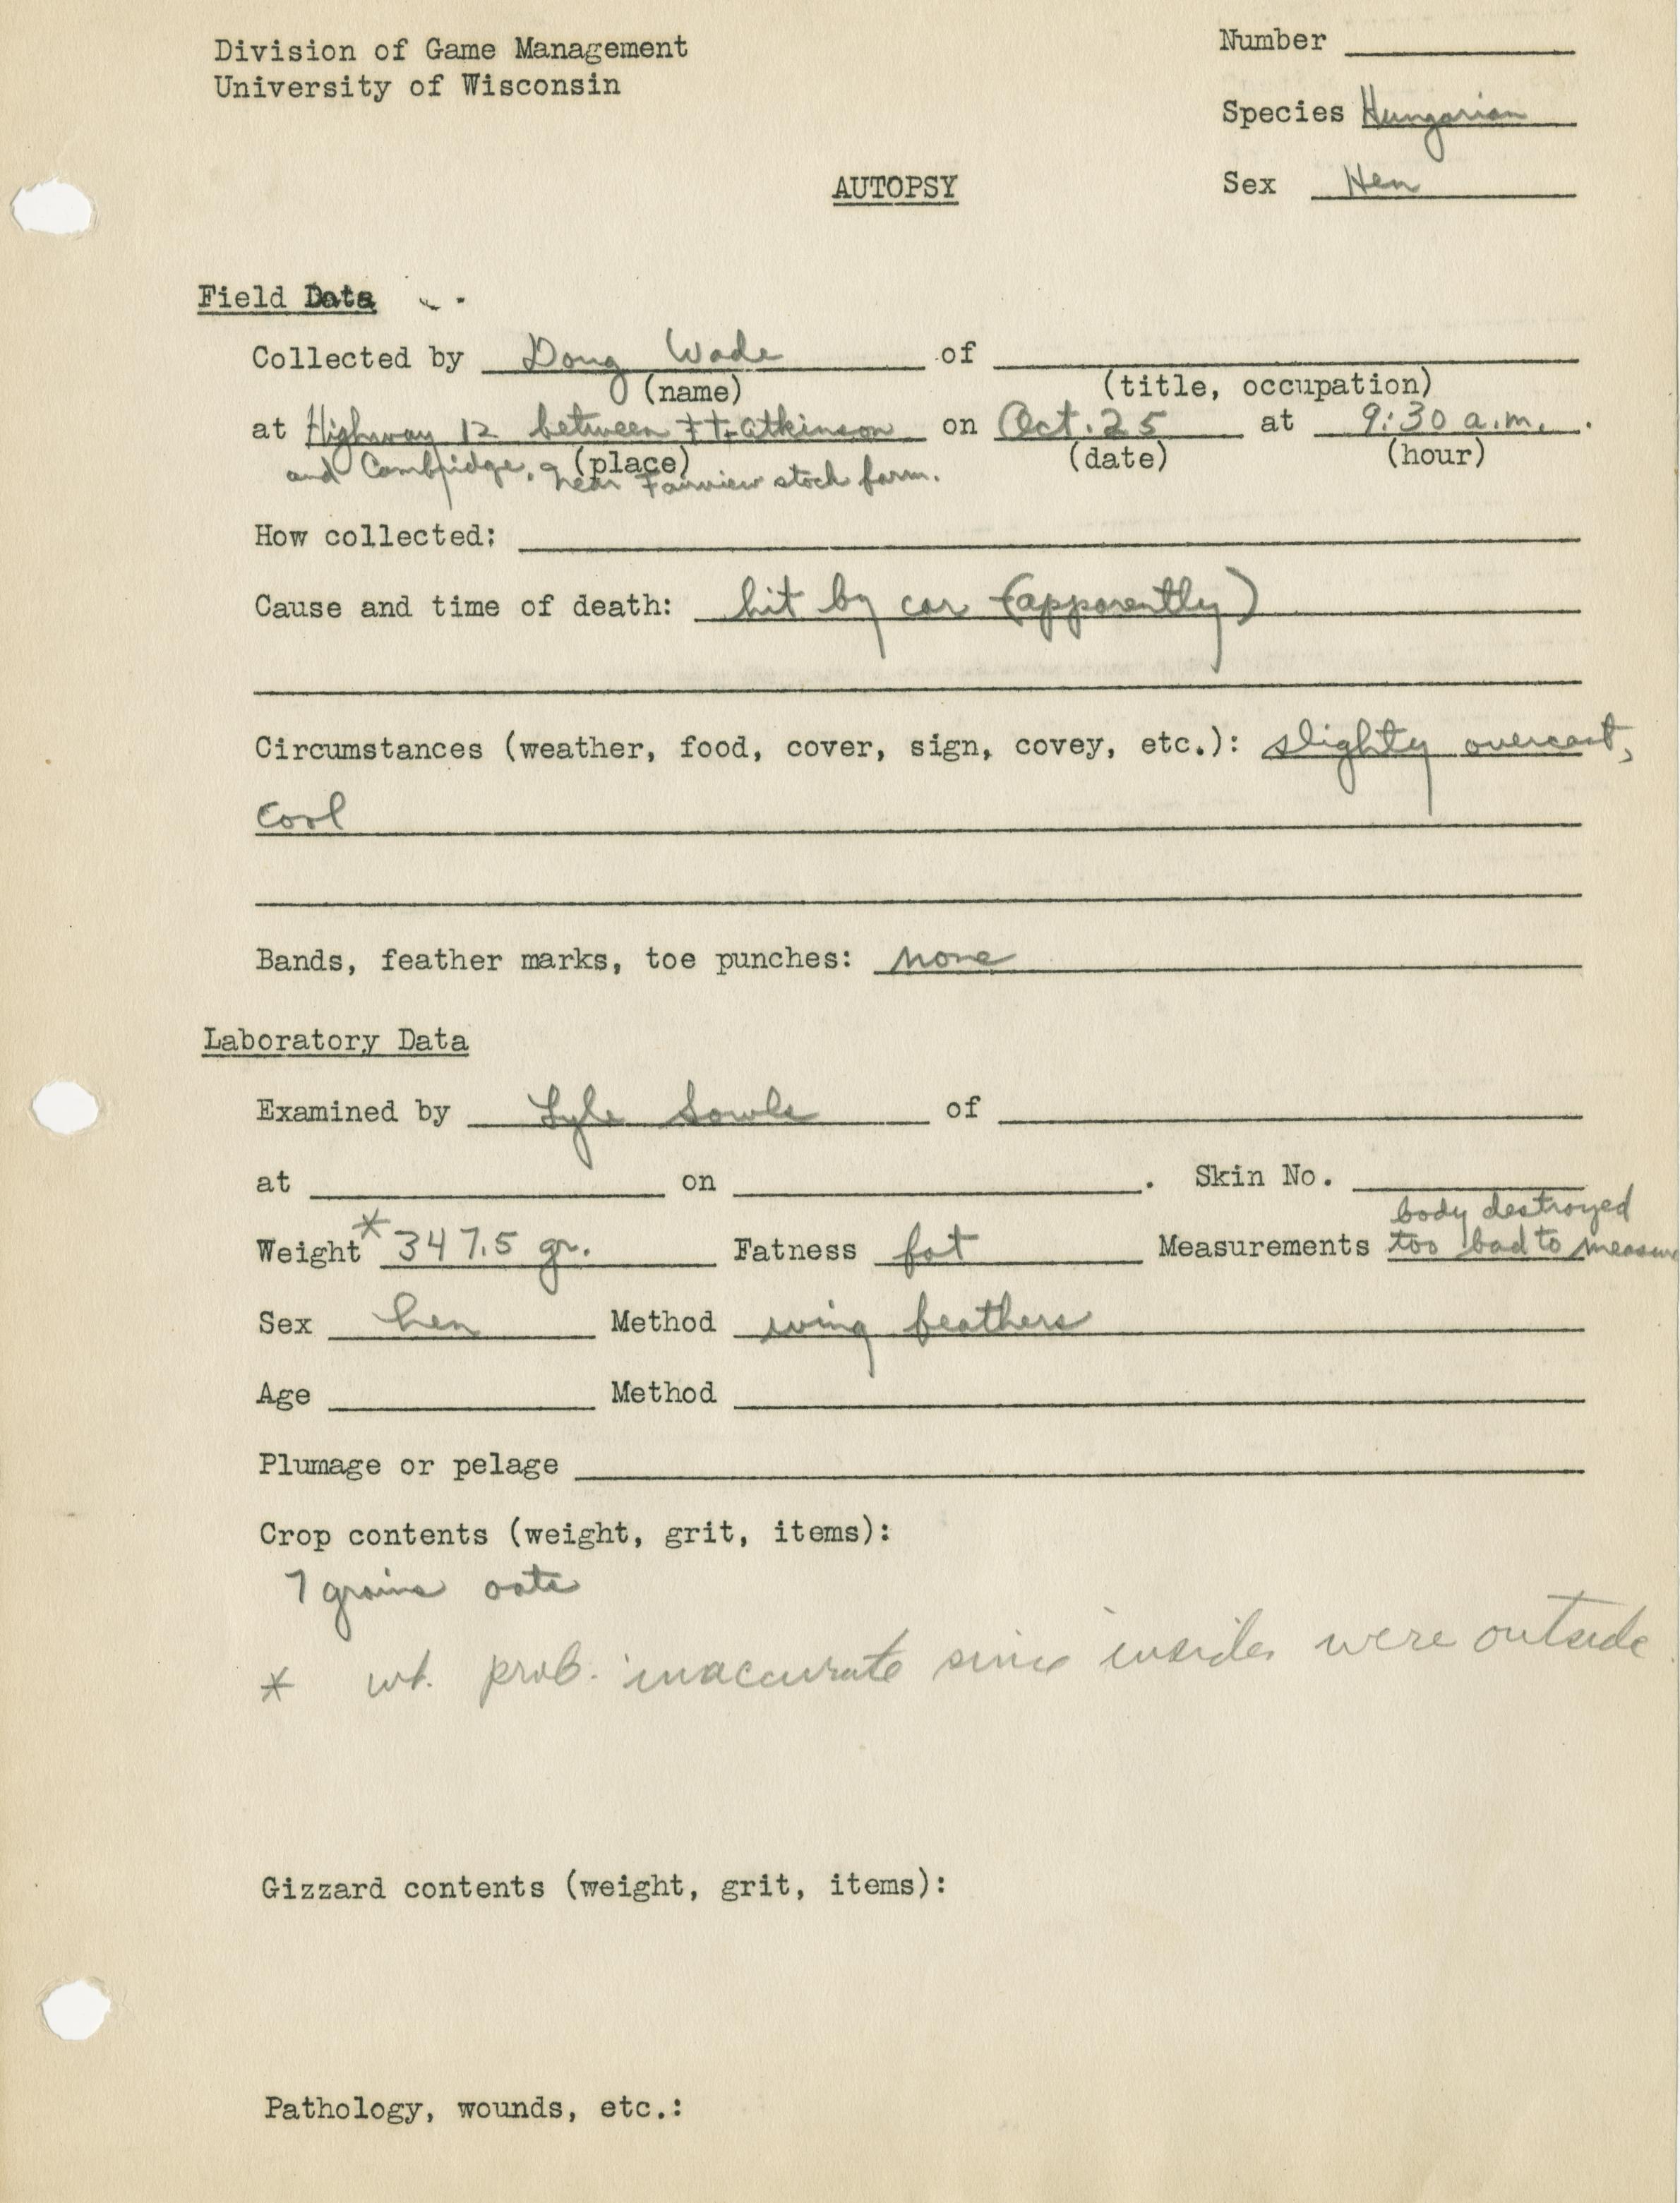 Division of Game Management
University of Wisconsin
Number
Species Hungarian
Sex Hen
AUTOPSY
Field Data
Collected by Doug Wade of
(name) (title, occupation)
at Highway 12 between Ft. Atkinson on Oct. 25 at 9:30 a.m.
(place) (date) (hour)
and Cambridge, near Fairview stock farm.
How collected:
Cause and time of death: hit by car (apparently)
Circumstances (weather, food, cover, sign, covey, etc.): slighty overcast,
cool
Bands, feather marks, toe punches: none
Laboratory Data
Examined by Lyle Sowls of
at on . Skin No.
body destroyed
Weight * 347.5 gr. Fatness fat Measurements too bad to measure
Sex hen Method wing feathers
Age Method
Plumage or pelage
Crop contents (weight, grit, items):
7 grains oats
* wt. prob. inaccurate since insides were outside.
Gizzard contents (weight, grit, items):
Pathology, wounds, etc.: